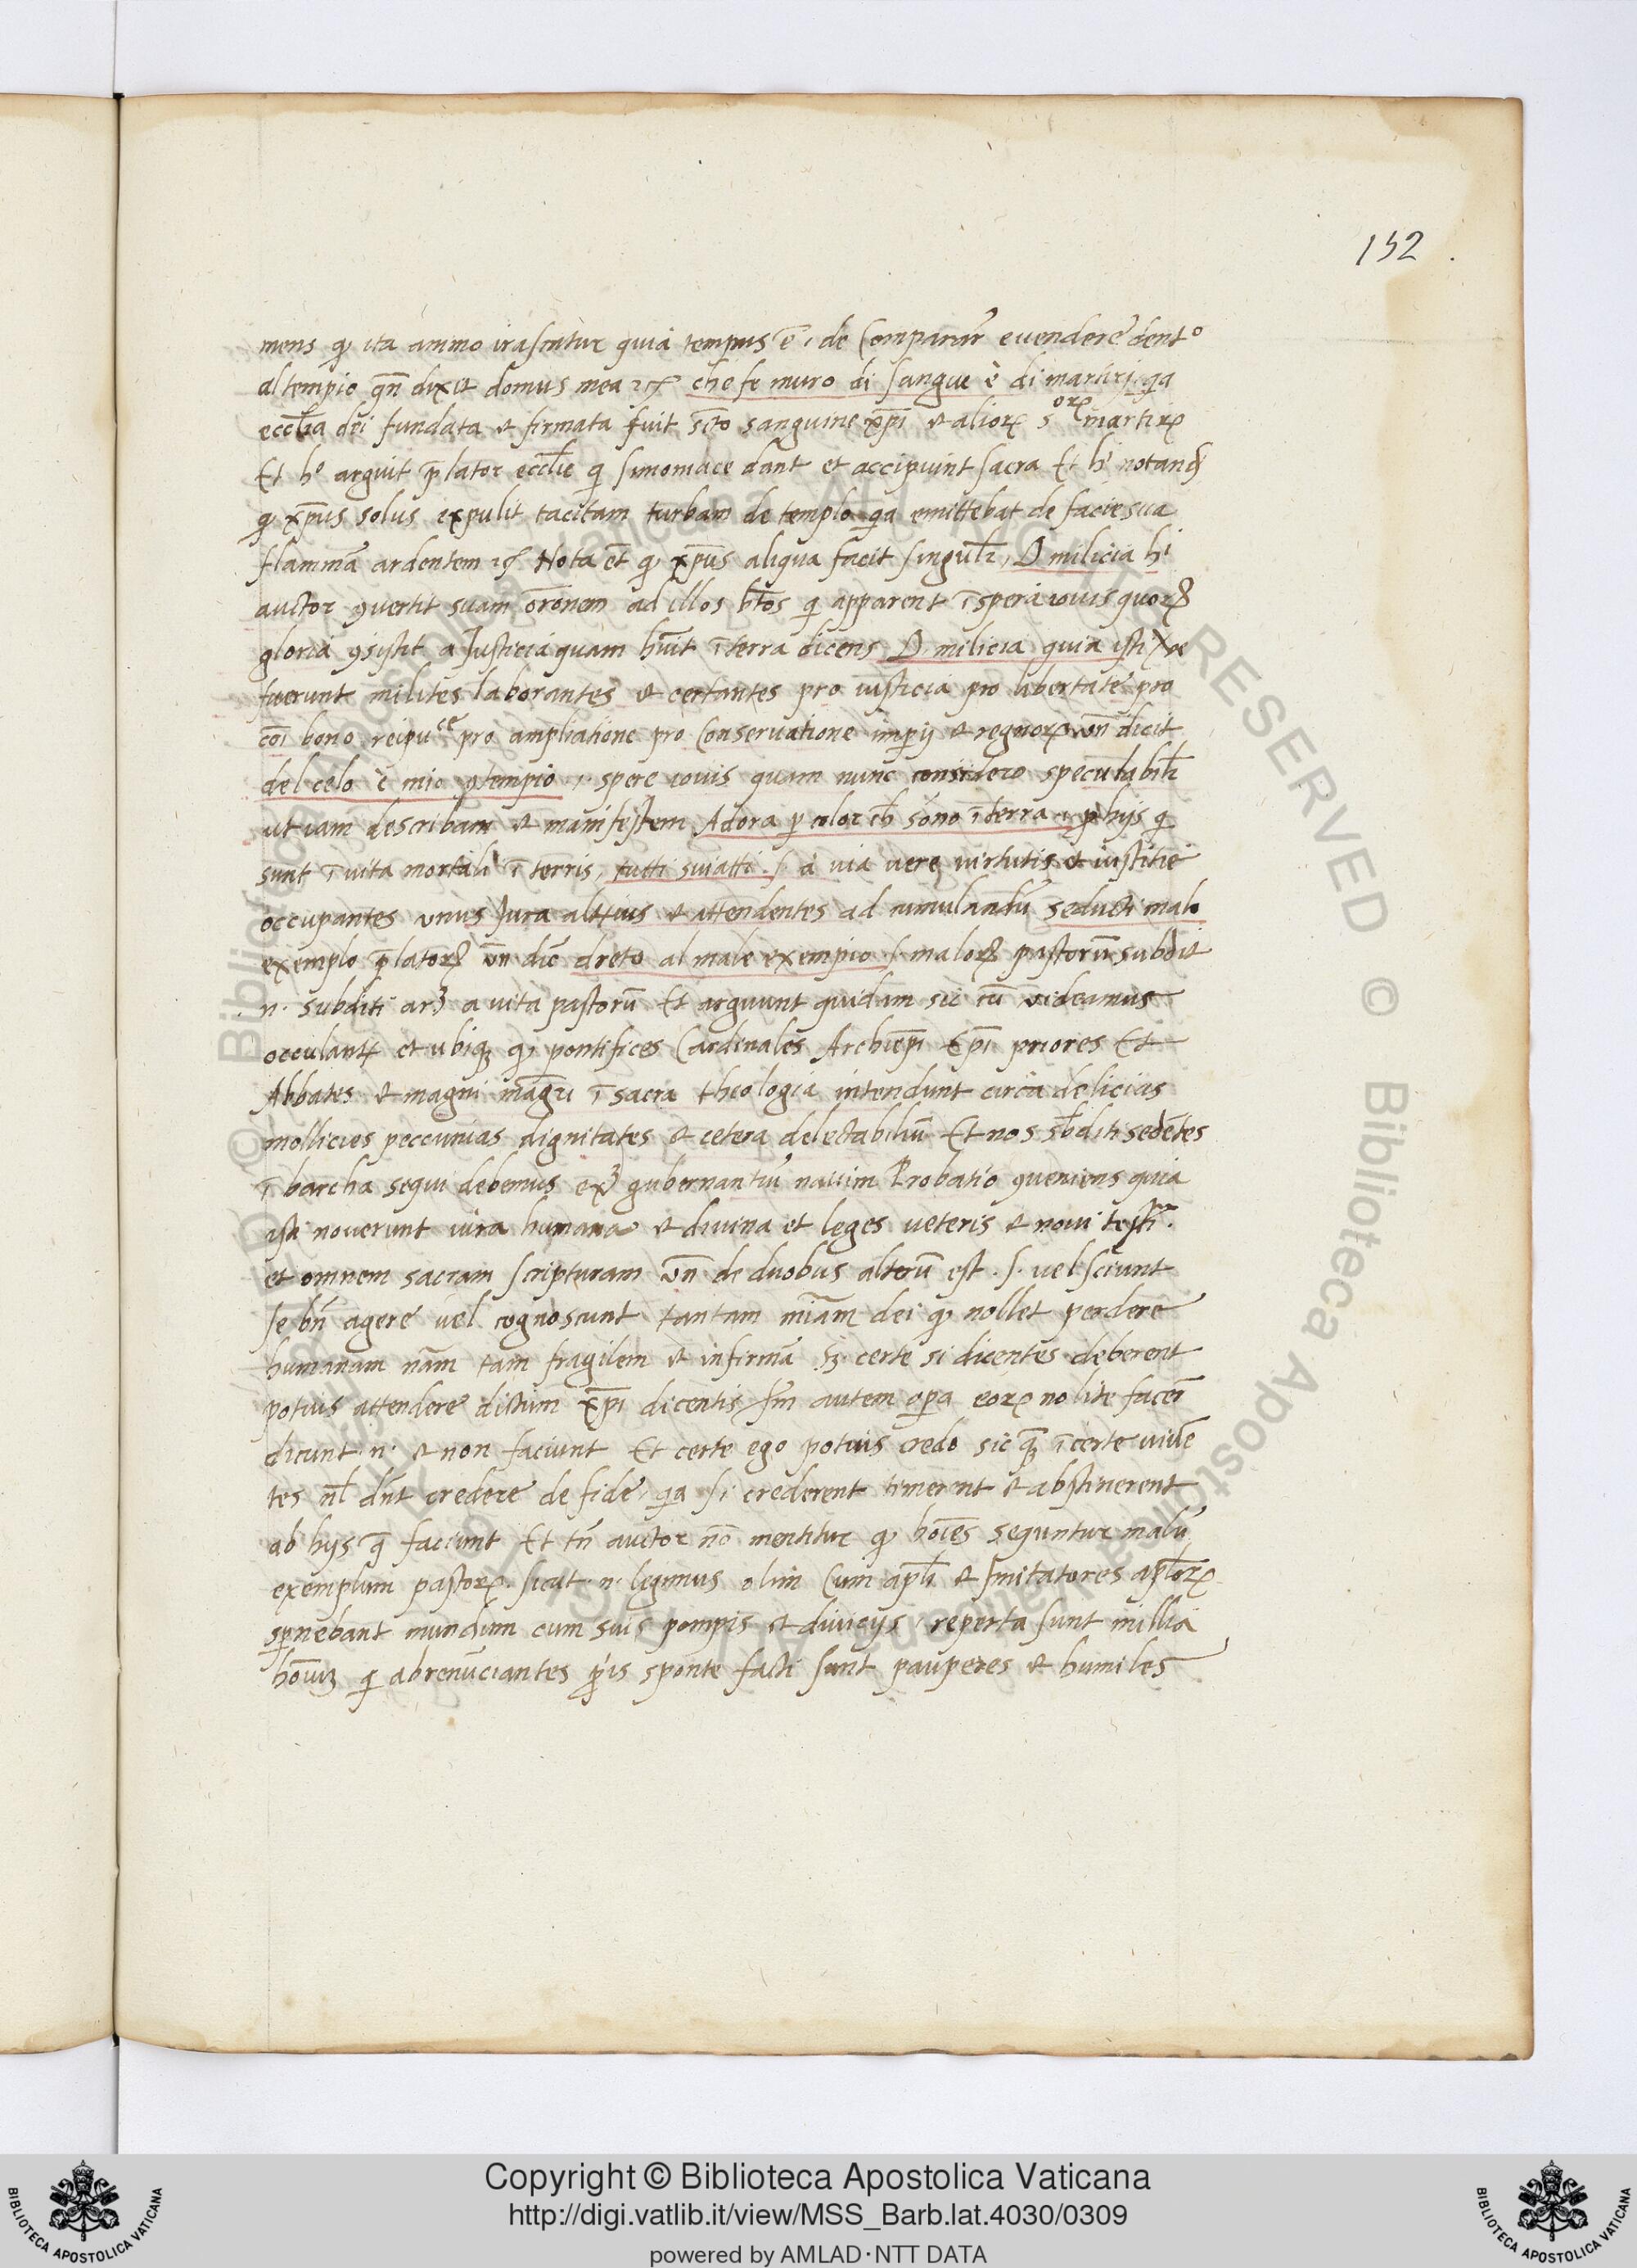 152
mens qꝫ ita animo irascatur quia tempus ē .i. de Comparar e vender dent°
al tempio qn̄ dixit domus mea ⁊c̃ che se muro di sangue è di martirj. qa
eccl̄ia dei fundata et firmata fuit sc̄to sanguine xp̄i et alioꝝ s^oꝝ martiꝝ
Et h° arguit p̄latos eccl̄ie qi simoniace dant et accipiunt sacra Et hⁱ notandꝫ
qꝫ xp̄us solus expulit tacitam turbam de templo qa emittebat de facie sua
flammā ardentem ⁊c̃ Nota et̄ qꝫ xp̄us aliqua facit singulr̄, O milicia hⁱ
auctor ꝯvertit suam or̄onem ad illos bt̄os qi apparent ī spera iovis quoꝝ
gloria ꝯsistit a Justicia quam hūit ī terra dicens O milicia quia isti
fuerunt milites laborantes et certantes pro iusticia pro libertate pro
cōi bono reipu^ce pro ampliatione pro Conservatione imperij et regnoꝝ un̄ dicit
del celo è mio ꝯtempio .i. spere iovis quam nunc considero speculabilr̄
ut iam describam et manifestem Adora p color ch̄ sono ī terra .i. p hijs qi
sunt ī vita mortali ī terris, tutti sviatti .s. a via vere virtutis et iustitie
occupantes unus Jura alterius et attendentes ad cumulandū seducti malo
exemplo p̄latoꝝ un̄ dic̄ dreto al male exempio .s. maloꝝ pastorū subdit
.n. subditi arꝫ a vita pastorū Et arguunt quidam sic cū videamus
occulantꝫ et ubiqꝫ qꝫ pontifices Cardinales Archiep̄i Ep̄i priores Et
Abbates et magni mag̃ri ī sacra theologia intendunt circa delicias
mollicies peccunias dignitates et cetera delectabiliū Et nos sb̄diti sedētes
ī barcha sequi debemus exꝫ gubernantiū navim Probatio ꝯveniens quia
isti noverunt iura humana et divina et leges veteris et novi testⁱ.
et omnem sacram scripturam un̄ de duobus alterū est .s. vel sciunt
se bn̄ agere vel cognoscunt tantam mīam dei qꝫ nollet perdere
humanam nām tam fragilem et infirmā Sꝫ certe si dicentes deberent
potius attendere dictum xp̄i dicentis sm̄ autem opa eoꝝ nolite facer̄
dicunt .n. et non faciunt Et certe ego potius credo sic qꝫ ī certe vivē
tes nl̄ dn̄t credere de fide, qa si crederent timerent et abstinerent
ab hijs q̄ faciunt Et tn̄ auctor nō mentitur qꝫ hoīes sequntur malū
exemplum pastoꝝ. sicut .n. legimus olim Cum apl̄i et Imitatores apl̄oꝝ
spernebant mundum cum suis pompis et divicijs, reperta sunt millia
hōiuꝫ qi abrenunciantes p̄is sponte facti sunt pauperes et humiles
Copyright © Biblioteca Apostolica Vaticana
http://digi.vatlib.it/view/MSS_Barb.lat.4030/0309
powered by AMLAD·NTT DATA
BIBLIOTECA APOSTOLICA VATICANA
BIBLIOTECA APOSTOLICA VATICANA